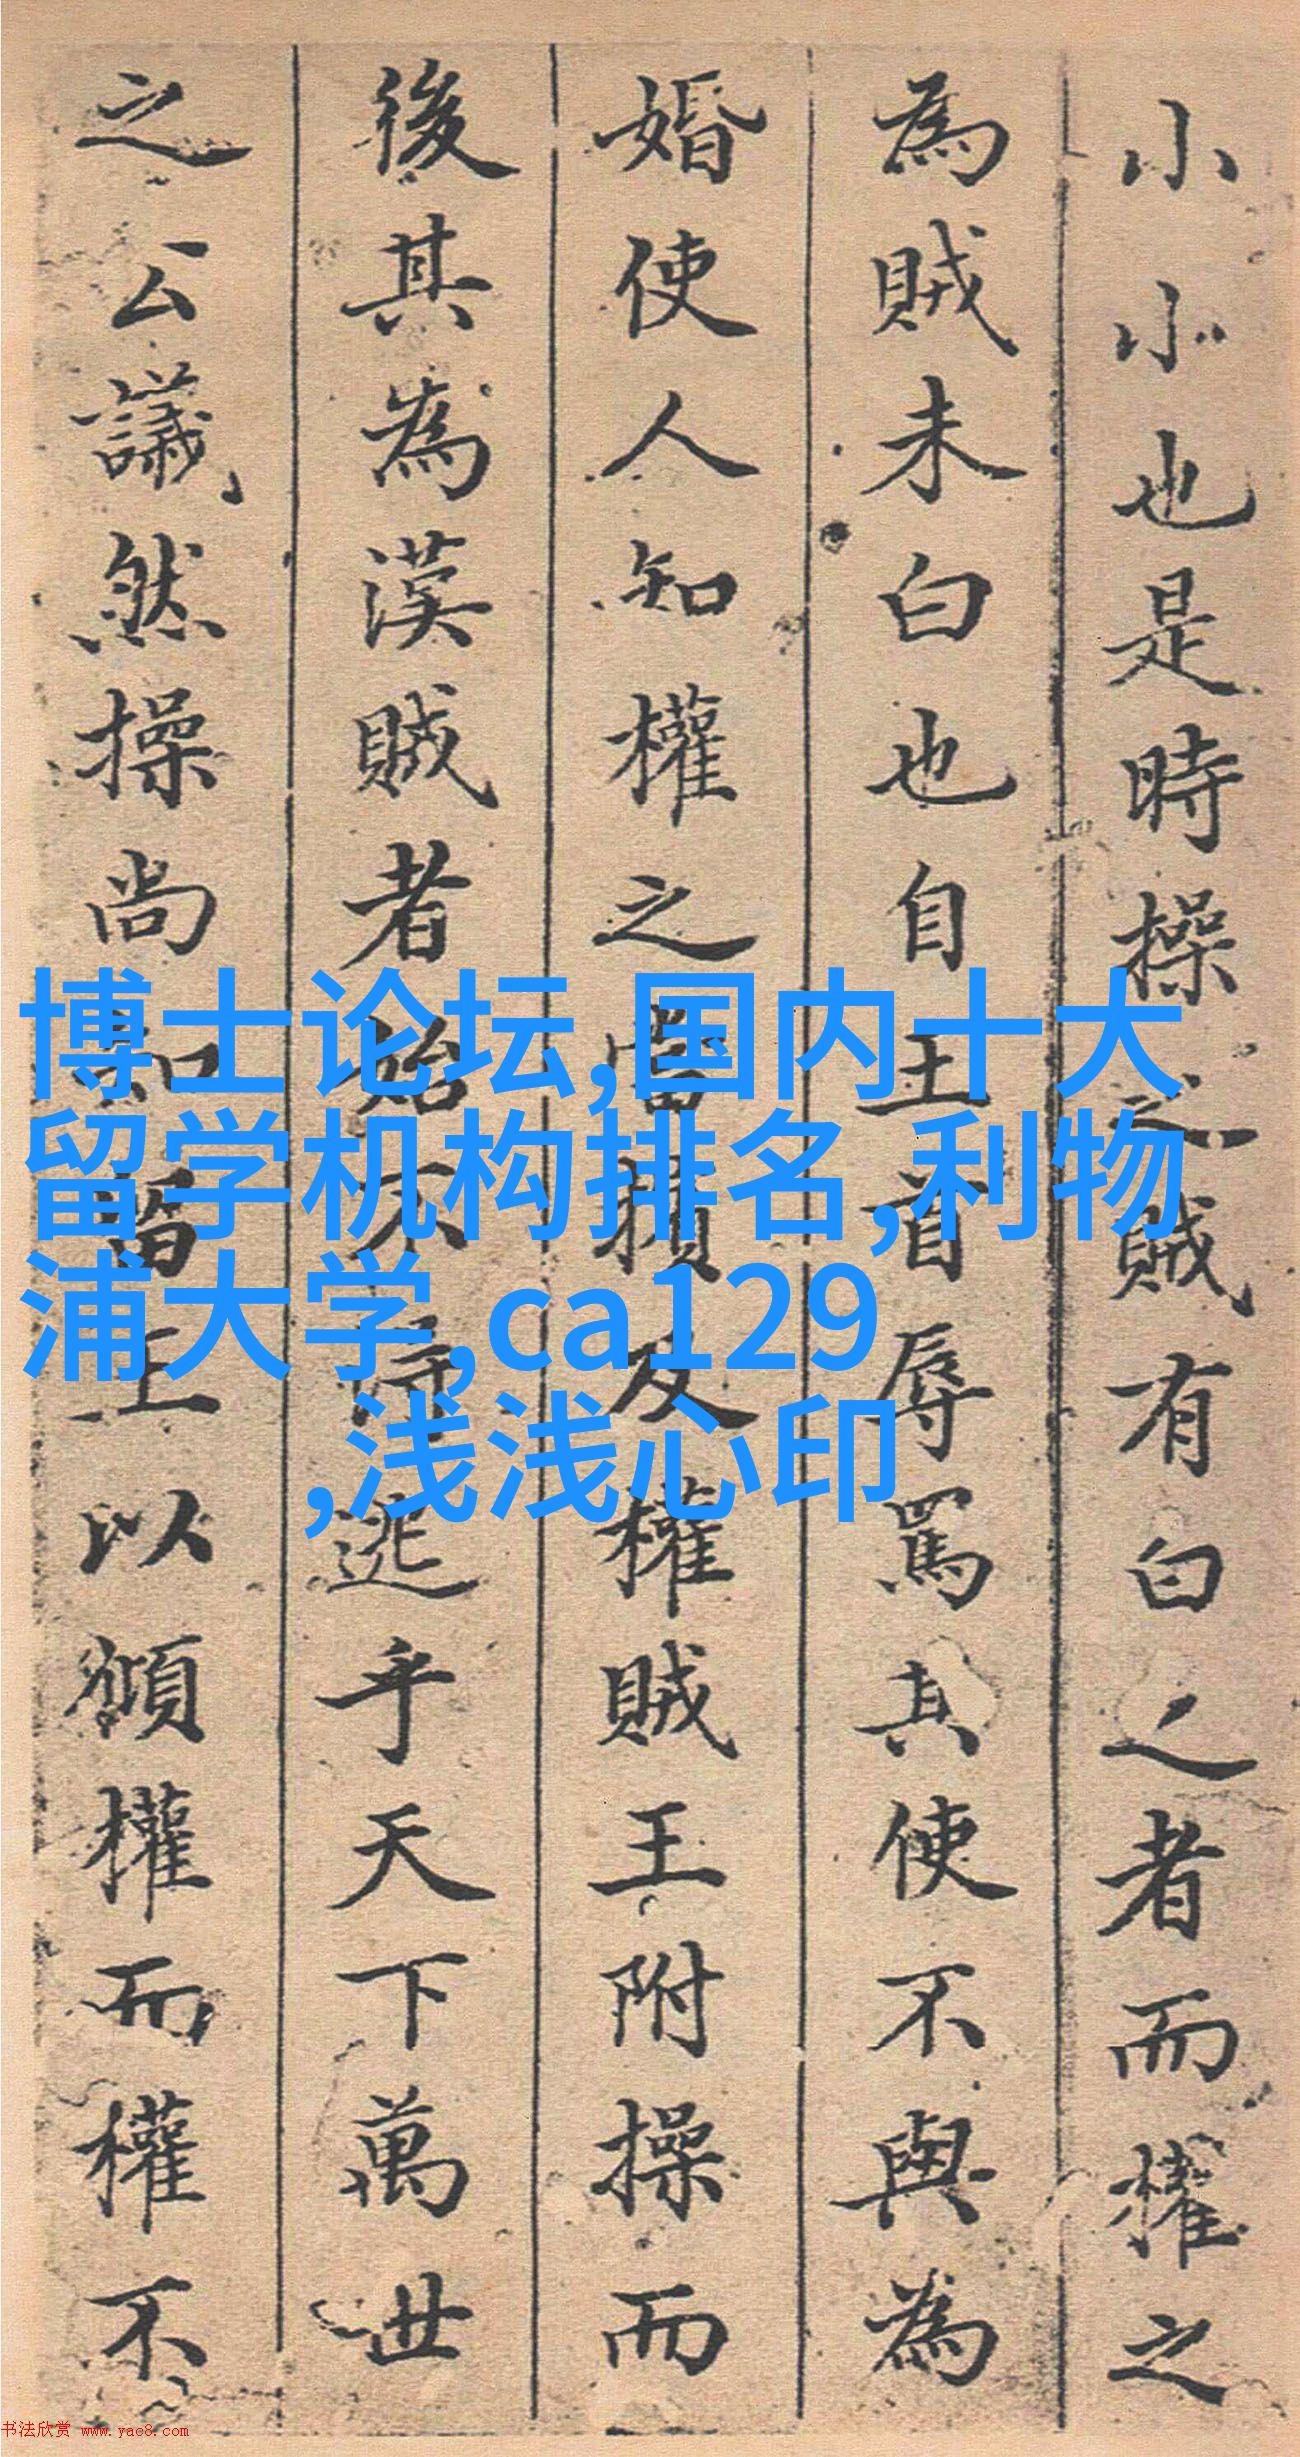 小小也是時操之賊有白之者而權之
為賊未白也自王首辱罵其使不與為
婚使人知權之當損及權賊王附操而
後其為漢賊者始不得逃乎天下萬世
之公議然操尚知以傾權而權不
博士论坛,国内十大
留学机构排名,利物
浦大学,ca129
,浅浅心印
书法欣赏 www.yac8.com